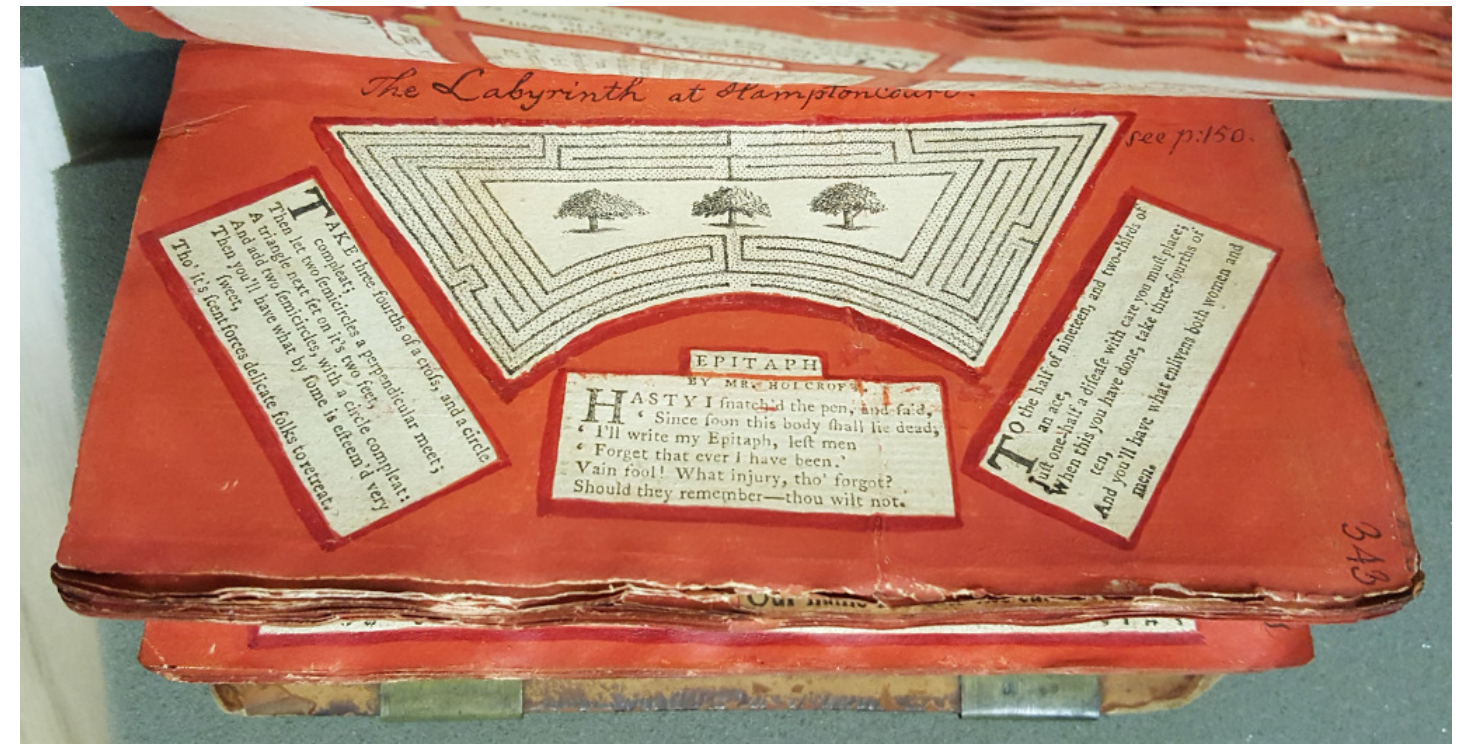 The Labyrinth at Hamptoncourt.
see p:150.
TAKE three-fourths of a croſs, and a circle
compleat;
Then let two ſemicircles a perpendicular meet;
A triangle next ſet on it's two feet,
And add two ſemicircles, with a circle compleat:
Then you'll have what by ſome is eſteem'd very
ſweet,
Tho' it's ſcent forces delicate folks to retreat.
EPITAPH
BY MR. HOLCROFT.
HASTY I ſnatch'd the pen, and ſaid,
‘ Since ſoon this body ſhall lie dead,
‘ I'll write my Epitaph, leſt men
‘ Forget that ever I have been.’
Vain fool! What injury, tho' forgot?
Should they remember—thou wilt not.
TO the half of nineteen, and two-thirds of
an ace,
Juſt one-half a diſeaſe with care you muſt place;
When this you have done, take three-fourths of
ten,
And you'll have what enlivens both women and
men.
343
Our